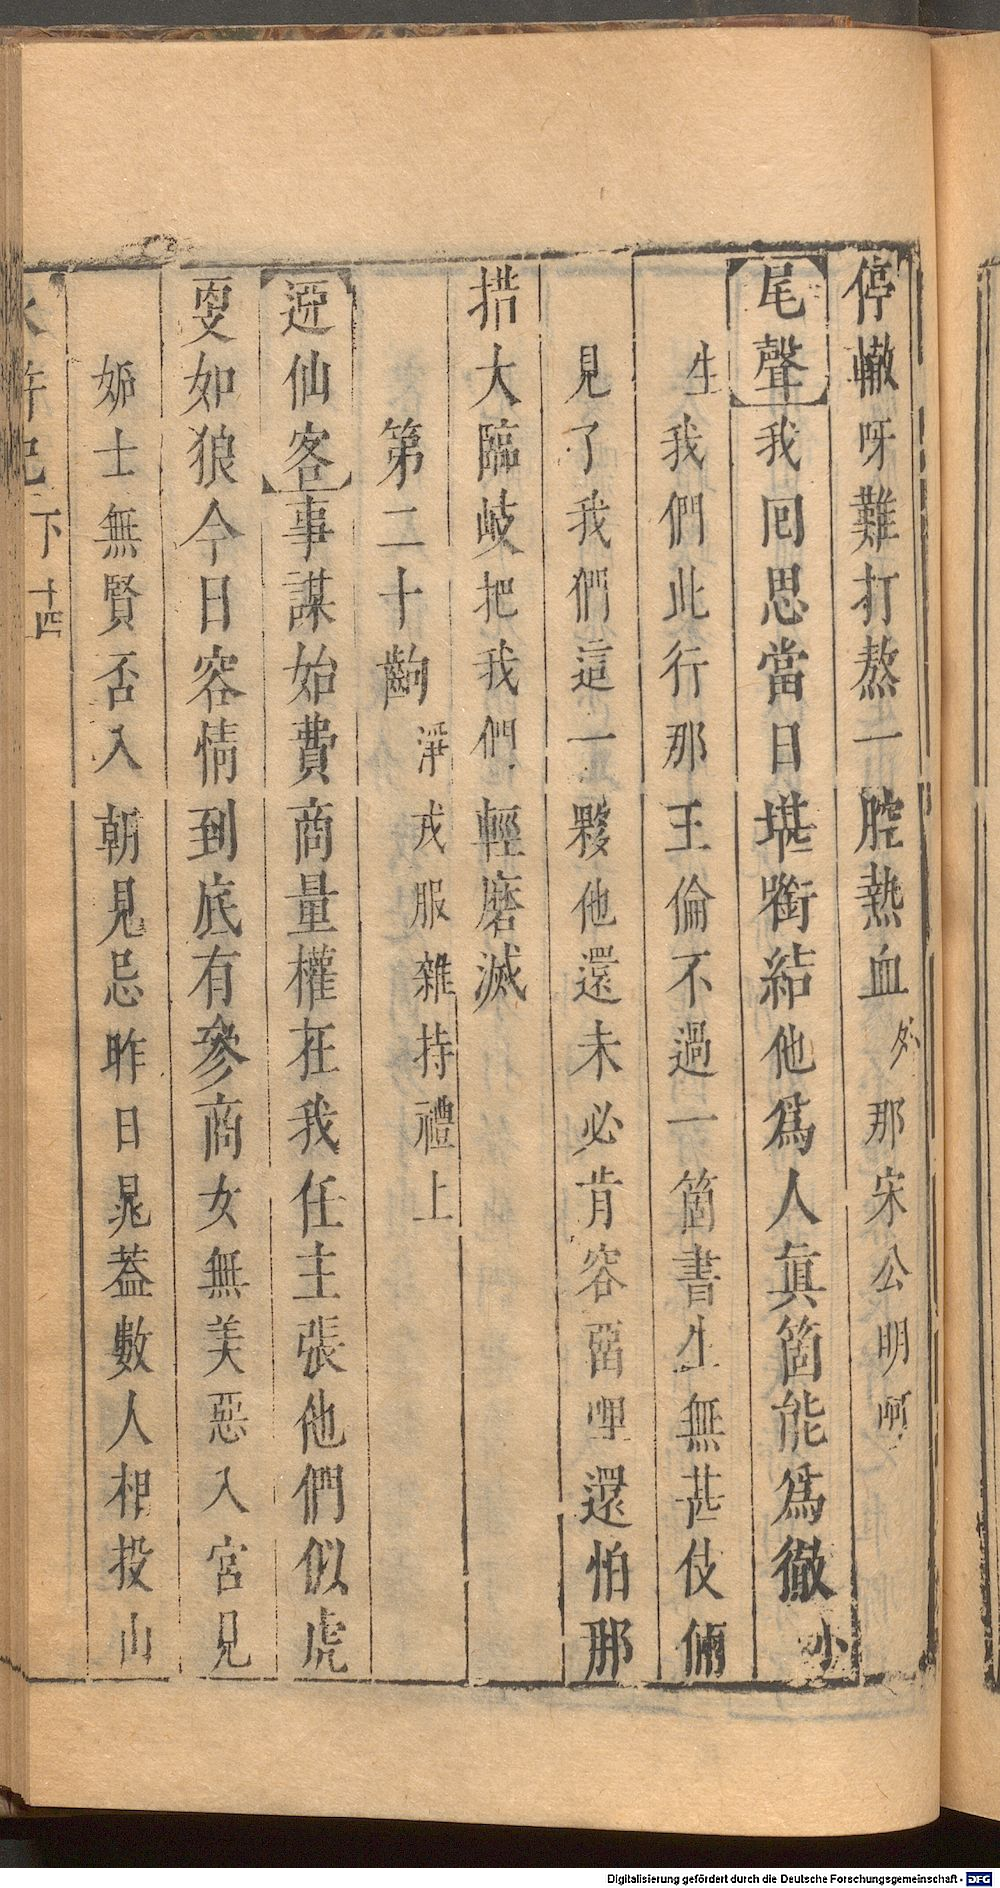 停轍呀難打熬一腔熱血外那宋公明呵
尾聲我回思當日堪銜結他爲人眞箇能爲徹小
生我們此行那王倫不過一箇書生無甚伎倆
見了我們這一夥他還未必肯容畱哩還怕那
措大臨岐把我們輕磨滅
第二十齣淨戎服雜持禮上
逰仙客事謀始費商量權在我任主張他們似虎
更如狼今日容情到底有參商女無美惡入宮見
妒士無賢否入朝見忌昨日晁蓋數人相投山
水滸記下十四
Digitalisierung gefördert durch die Deutsche Forschungsgemeinschaft - DFG